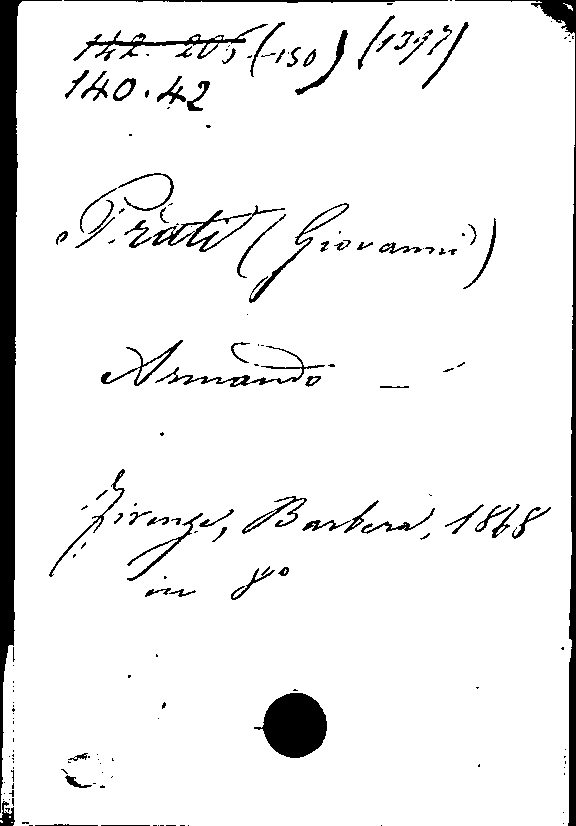 142. 205 (150) (1397)
140.42
Prati (Giovanni)
Armando —
Firenze, Barbera, 1868
in 8º